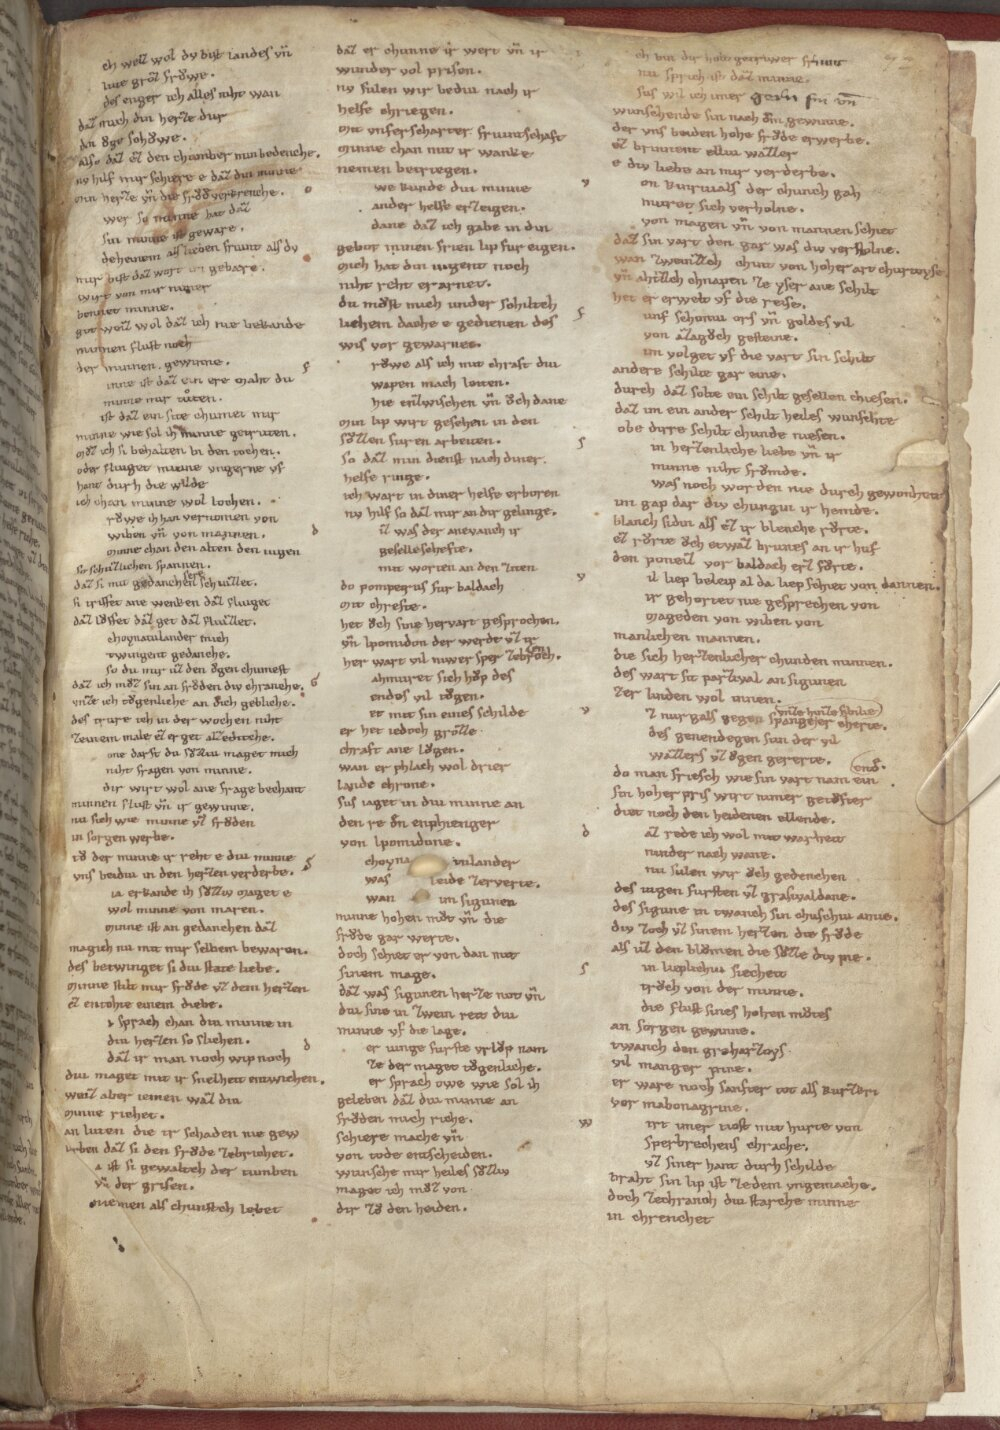 ch weiz wol dv bist landes vñ
lute groz frowe.
des enger ich alles niht wan
daz mich din herze dur
din oge schowe.
also daz ez den chomber min bedenche.
nv hilf mir schiere e daz din minne
min herze vñ die frode verkrenche.
wer so minne hat daz
sin minne ist geware.
deheinem als lieben friunt als dv
mir bist daz wort
wirt von mir nimer
bennet minne.
got weiz wol daz ich nie bekande
minnen flust noch
der minnen gewinne.
inne ist daz ein ere maht du
minne mir tuten.
ist daz ein site chumet mir
minne wie sol ich minne getruten.
moz ich si behalten bi den tochen.
oder fliuget minne vngerne vf
hant durh die wilde
ich chan minne wol lochen.
rowe ih han vernomen von
wiben vñ von mannen.
minne chan den alten den iugen
so schuzlichen spannen.
daz si mit gedanchen sere schiuzet.
si triffet ane wenken daz fliuget
daz loffet daz get daz fliuzet.
choynatulander mich
twingent gedanche.
so du mir uz den ogen chumest
daz ich moz sin an froden div chranche.
vnze ich togenliche an dich gebliche.
des trure ich in der wochen niht
zeinem male ez er get alzediche.
one darft du sozziu maget mich
niht fragen von minne.
dir wirt wol ane frage bechant
minnen flust vñ ir gewinne.
nu sich wie minne vz froden
in sorgen werbe.
to der minne ir reht e diu minne
vns beidiu in den herzen verderbe.
ia erkande ih soziv maget e
wol minne von maren.
minne ist an gedanchen daz
mag ich nu mit mir selbem bewaren.
des betwinget si diu state liebe.
minne stilt mir frode vz dem herzen
ez entohte einem diebe.
sprach chan diu minne in
diu herzen so slichen.
daz ir man noch wip noch
diu maget mit ir snelheit entwichen.
weiz aber iemen waz diu
minne richet.
an luten die ir schaden nie gew
urben daz si den frode zebrichet.
a ist si gewaltch der tumben
vñ der grisen.
niemen als chunstch lebet
daz er chunne ir wert vñ ir
wunder vol prisen.
nv sulen wir bediu nach ir
helfe chriegen.
mit vnserscharter friuntschaft
minne chan nut ir wanke
nemen betriegen.
we kunde diu minne
ander helfe erzeigen.
dane daz ich gabe in din
gebot minen frien lip fur eigen.
mich hat din iugent noch
niht reht erarnet.
du most mich under schiltch
lichem dache e gedienen des
wis vor gewarnet.
rowe als ich mit chraft diu
wapen mach leiten.
hie enzwischen vñ och dane
min lip wirt gesehen in den
sozzen suren arbeiten.
so daz min dienst nach diner
helfe ringe.
ich wart in diner helfe erboren
nv hilf so daz mir an dir gelinge.
iz was der anevanch ir
geselleschefte.
mit worten an den ziten
do pompeyus fur baldach
mit chrefte.
het och sine hervart gesprochen.
vñ ipomidon der werde vz ir
her wart vil niwer sper zebrochen.
ahmuret sich hop des
endes vil togen.
et mit sin eines schilde
er het iedoch grozze
chraft ane logen.
wan er phlach wol drier
lande chrone.
sus iaget in diu minne an
den re dn enphienger
von ipomidone.
choyna tulander
was leide zerverte.
wan im sigunen
minne hohen mot vñ die
frode gar werte.
doch schiet er von dan mit
sinem mage.
daz was sigunen herze not vñ
diu sine in zwein reit diu
minne vf die lage.
er iunge furste vrlop nam
ze der maget togenliche.
er sprach owe wie sol ih
geleben daz diu minne an
froden mich riche.
schiere mache vñ
von tode entscheiden.
wunsche mir heiles sozziv
maget ich moz von
dir zo den heiden.
ch bin dir holt getriwer friunt
nu sprich ist daz minne.
sus wil ich imer gern sin vñ
wunschende sin nach dm gewinne.
der vns beiden hohe frode erwerbe.
ez brinnent elliu wazzer
e diu liebe an mir verderbe.
on kurwals der chunch gah
muret sich verholne.
von magen vñ von mannen schiet
daz sin vart den gar was div verstolne.
wan zweinzch chint von hoher art churtoyse
vñ ahtzch chnapen ze yser ane schilt
het er erwelt vf die reise.
unf schoniu ors vñ goldes vil
von azagoch gesteine.
im volget vf die vart sin schilt
andere schilte gar eine.
durch daz solte ein schilt gesellen chiesen.
daz im ein ander schilt heiles wunschte
obe dirre schilt chunde niesen.
in herzenliche liebe vñ ir
minne niht fromde.
was noch worden nie durch gewonheit
im gap dar div chungin ir hemde.
blanch sidin als ez ir blenche rorte.
ez rorte och etwaz brunes an ir huf
den poneiz vor baldach erz forte.
il liep beleip al da liep schiet von dannen.
ir gehortet nie gesprechen von
mageden von wiben von
manlichen mannen.
die sich herzenlicher chunden minnen.
des wart sit parzival an sigunen
zer linden wol innen.
z nurgals gegen spangeier cherte.
vnze hinze sibilie
des genendegen sun der vil
wazzers vz ogen gererte.
do man friesch wie sin vart nam ein end.
sin hoher pris wirt nimer getoster
diet noch den heidenen ellende.
az rede ich wol mit warheit
ninder nach wane.
nu sulen wir och gedenchen
des iugen fursten vz graswaldane.
des sigune in twanch sin chuschiu amie.
div zoch vz sinem herzen die frode
als uz den blomen die sozze div pie.
in lieplichiu siecheit
troch von der minne.
die flust sines hohen motes
an sorgen gewinne.
twanch den graharzoys
vil manger pine.
er ware noch sanfter tot als kurzkri
vor mabonagrine.
irt imer tiost mit hurte von
sperbrechens chrache.
vz siner hant durh schilde
braht sin lip ist ze dem vngemache.
doch zechranch diu starche minne
in chrenchet